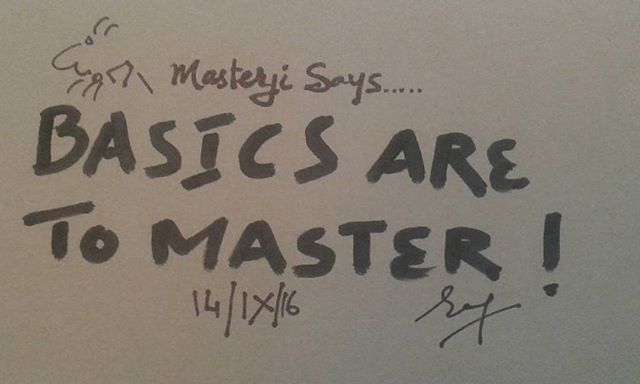 Masterji Says.....
BASICS ARE
TO MASTER!
14/IX/16